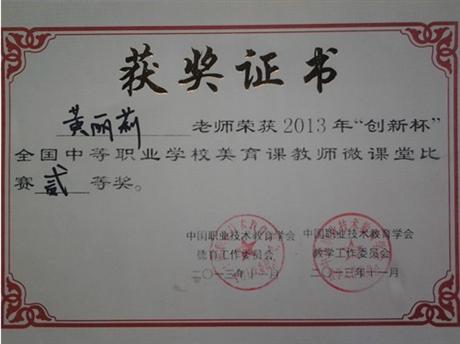 获奖证书
黄丽莉 老师荣获2013年“创新杯”
全国中等职业学校美育课教师微课堂比
赛 贰 等奖。
中国职业技术教育学会 中国职业技术教育学会
德育工作委员会 教学工作委员会
二〇一三年十一月 二〇一三年十一月